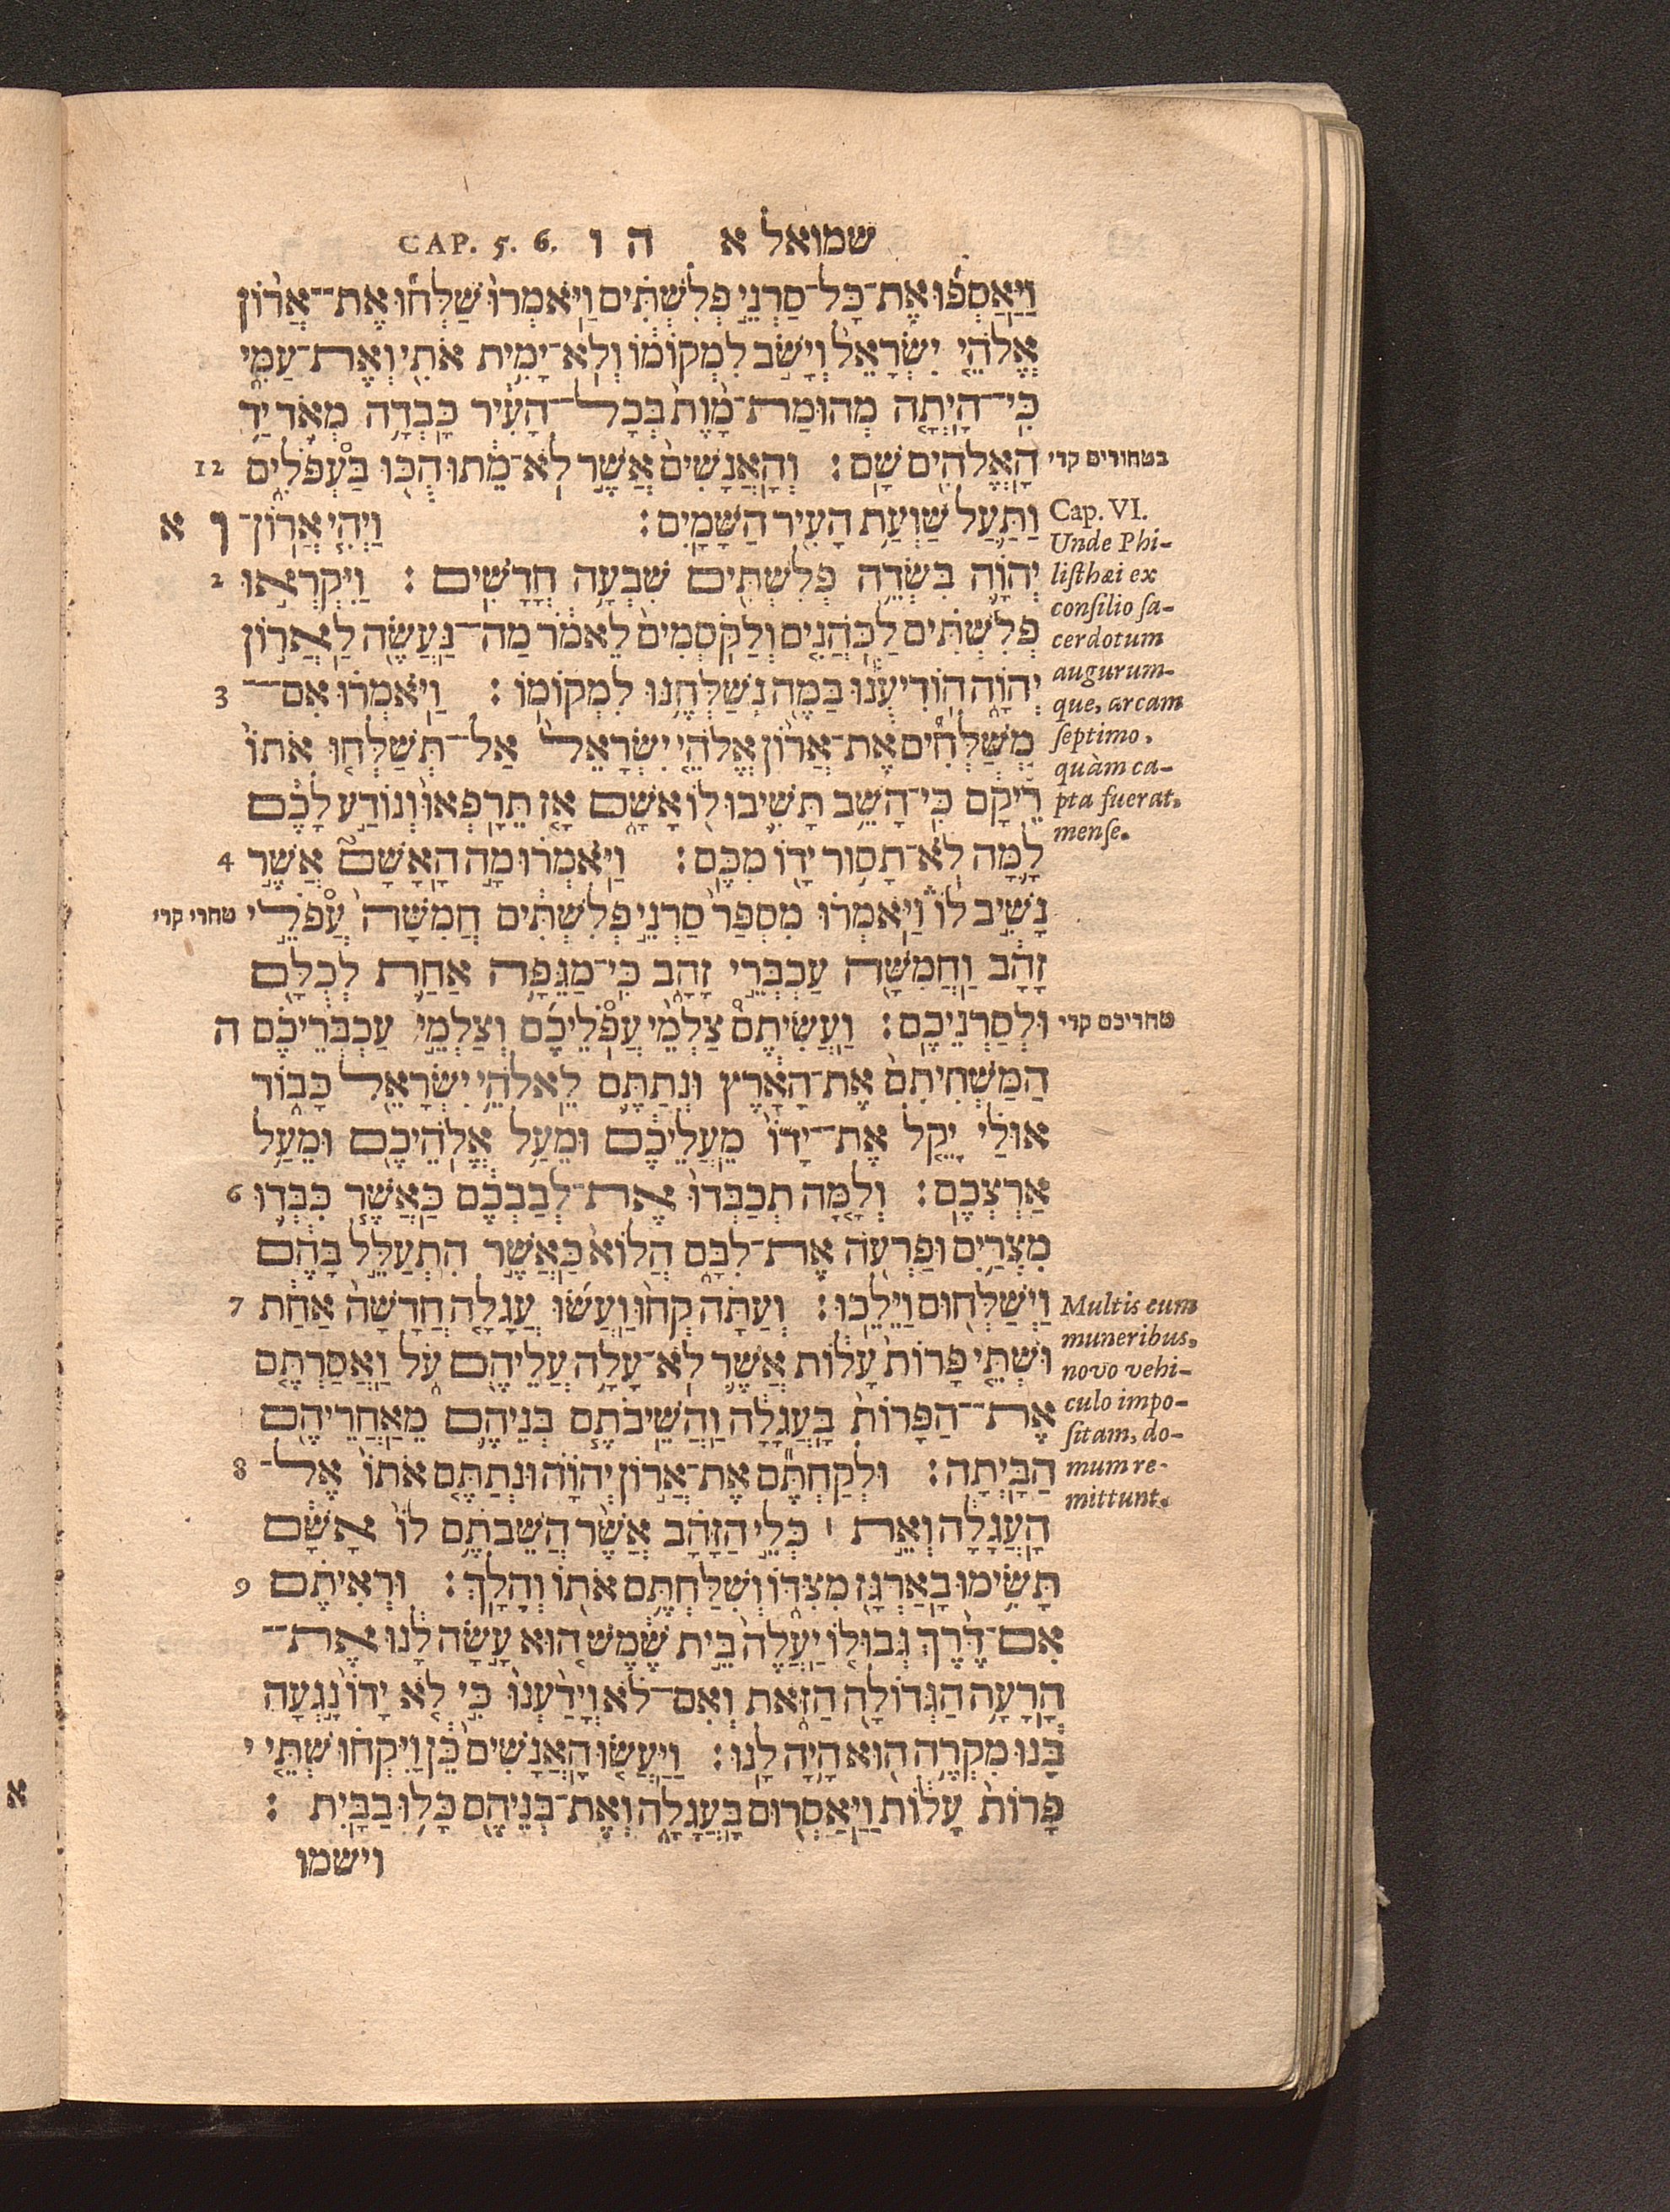 שמואל א ה ו CAP. 5. 6.
וַיַּאַסְפ֨וּ אֶת־כָּל־סַרְנֵ֜י פְלִשְׁתִּ֗ים וַיֹּֽאמְרוּ֙ שַׁלְּח֞וּ אֶת־־אֲר֨וֹן
אֱלֹהֵ֤י יִשְׂרָאֵל֙ וְיָשֹׁ֣ב לִמְקוֹמ֔וֹ וְלֹֽא־יָמִ֥ית אֹתִ֖י וְאֶת־עַמִּ֑י
כִּֽי־־הָיְתָ֤ה מְהוּמַת־מָ֙וֶת֙ בְּכָל־־הָעִ֔יר כָּבְדָ֥ה מְאֹ֛ד יַ֥ד
הָאֱלֹהִ֖ים שָֽׁם׃ וְהָֽאֲנָשִׁים֙ אֲשֶׁ֣ר לֹא־מֵ֔תוּ הֻכּ֖וּ בַּעְפֹלִ֑ים 12
בטחורים קרי
וַתַּ֛עַל שַֽׁוְעַ֥ת הָעִ֖יר הַשָּׁמָֽיִם׃ וַיְהִ֧י אֲרוֹן־ ו א
יְהוָ֛ה בִּשְׂדֵ֥ה פְלִשְׁתִּ֖ים שִׁבְעָ֥ה חֳדָשִֽׁים׃ וַיִּקְרְא֣וּ 2
פְלִשְׁתִּ֗ים לַכֹּהֲנִ֤ים וְלַקֹּֽסְמִים֙ לֵאמֹ֔ר מַֽה־־נַּעֲשֶׂ֖ה לַאֲר֣וֹן
יְהוָ֑ה הוֹדִיעֻ֕נוּ בַּמֶּ֖ה נְשַׁלְּחֶ֥נּוּ לִמְקוֹמֽוֹ׃ וַיֹּאמְר֗וּ אִֽם־־ 3
מְשַׁלְּחִ֞ים אֶת־אֲר֨וֹן אֱלֹהֵ֤י יִשְׂרָאֵל֙ אַל־־תְּשַׁלְּח֤וּ אֹתוֹ֙
רֵיקָ֔ם כִּֽי־הָשֵׁ֥ב תָּשִׁ֛יבוּ ל֖וֹ אָשָׁ֑ם אָ֤ז תֵּרָֽפְאוּ֙ וְנוֹדַ֣ע לָכֶ֔ם
לָ֛מָּה לֹא־תָס֥וּר יָד֖וֹ מִכֶּֽם׃ וַיֹּאמְר֗וּ מָ֣ה הָאָשָׁם֮ אֲשֶׁ֣ר 4
נָשִׁ֣יב לוֹ֒ וַיֹּאמְר֗וּ מִסְפַּר֙ סַרְנֵ֣י פְלִשְׁתִּ֔ים חֲמִשָּׁה֙ עָפְלֵ֣י
טחרי קרי
זָהָ֔ב וַחֲמִשָּׁ֖ה עַכְבְּרֵ֣י זָהָ֑ב כִּֽי־מַגֵּפָ֥ה אַחַ֛ת לְכֻלָּ֖ם
וּלְסַרְנֵיכֶֽם׃ וַעֲשִׂיתֶם֩ צַלְמֵ֨י עָפְלֵיכֶ֜ם וְצַלְמֵ֣י עַכְבְּרֵיכֶ֗ם ה
טחריכם קרי
הַמַּשְׁחִיתִם֙ אֶת־הָאָ֔רֶץ וּנְתַתֶּ֛ם לֵאלֹהֵ֥י יִשְׂרָאֵ֖ל כָּב֑וֹד
אוּלַ֗י יָקֵ֤ל אֶת־־יָדוֹ֙ מֵֽעֲלֵיכֶ֔ם וּמֵעַ֥ל אֱלֹהֵיכֶ֖ם וּמֵעַ֥ל
אַרְצְכֶֽם׃ וְלָ֤מָּה תְכַבְּדוּ֙ אֶת־לְבַבְכֶ֔ם כַּאֲשֶׁ֧ר כִּבְּד֛וּ 6
מִצְרַ֥יִם וּפַרְעֹ֖ה אֶת־לִבָּ֑ם הֲלוֹא֙ כַּאֲשֶׁ֣ר הִתְעַלֵּ֣ל בָּהֶ֔ם
וַֽיְשַׁלְּח֖וּם וַיֵּלֵֽכוּ׃ וְעַתָּ֗ה קְח֨וּ וַעֲשׂ֜וּ עֲגָלָ֤ה חֲדָשָׁה֙ אֶחָ֔ת 7
וּשְׁתֵּ֤י פָרוֹת֙ עָל֔וֹת אֲשֶׁ֛ר לֹא־עָלָ֥ה עֲלֵיהֶ֖ם עֹ֑ל וַאֲסַרְתֶּ֤ם
אֶת־־הַפָּרוֹת֙ בָּעֲגָלָ֔ה וַהֲשֵׁיבֹתֶ֧ם בְּנֵיהֶ֛ם מֵאַחֲרֵיהֶ֖ם
הַבָּֽיְתָה׃ וּלְקַחְתֶּ֞ם אֶת־אֲר֣וֹן יְהוָ֗ה וּנְתַתֶּ֤ם אֹתוֹ֙ אֶל־ 8
הָ֣עֲגָלָ֔ה וְאֵ֣ת ׀ כְּלֵ֣י הַזָּהָ֗ב אֲשֶׁ֨ר הֲשֵׁבֹתֶ֥ם לוֹ֙ אָשָׁ֔ם
תָּשִׂ֥ימוּ בָאַרְגַּ֖ז מִצִּדּ֑וֹ וְשִׁלַּחְתֶּ֥ם אֹת֖וֹ וְהָלָֽךְ׃ וּרְאִיתֶ֗ם 9
אִם־דֶּ֨רֶךְ גְּבוּל֤וֹ יַֽעֲלֶה֙ בֵּ֣ית שֶׁ֔מֶשׁ ה֚וּא עָ֣שָׂה לָ֔נוּ אֶת־־
הָרָעָ֥ה הַגְּדוֹלָ֖ה הַזֹּ֑את וְאִם־־לֹ֗א וְיָדַ֙עְנוּ֙ כִּ֣י לֹ֤א יָדוֹ֙ נָ֣גְעָה
בָּ֔נוּ מִקְרֶ֥ה ה֖וּא הָ֥יָה לָֽנוּ׃ וַיַּעֲשׂ֤וּ הָאֲנָשִׁים֙ כֵּ֔ן וַיִּקְח֗וּ שְׁתֵּ֤י י
פָרוֹת֙ עָל֔וֹת וַיַּאַסְר֖וּם בָּעֲגָלָ֑ה וְאֶת־בְּנֵיהֶ֖ם כָּל֥וּ בַבָּֽיִת׃
וישמו
Cap. VI.
Unde Phi-
listhæi ex
consilio sa-
cerdotum
augurum-
que, arcam
septimo,
quàm ca-
pta fuerat,
mense.
Multis eum
muneribus,
novo vehi-
culo impo-
sitam, do-
mum re-
mittunt.
א